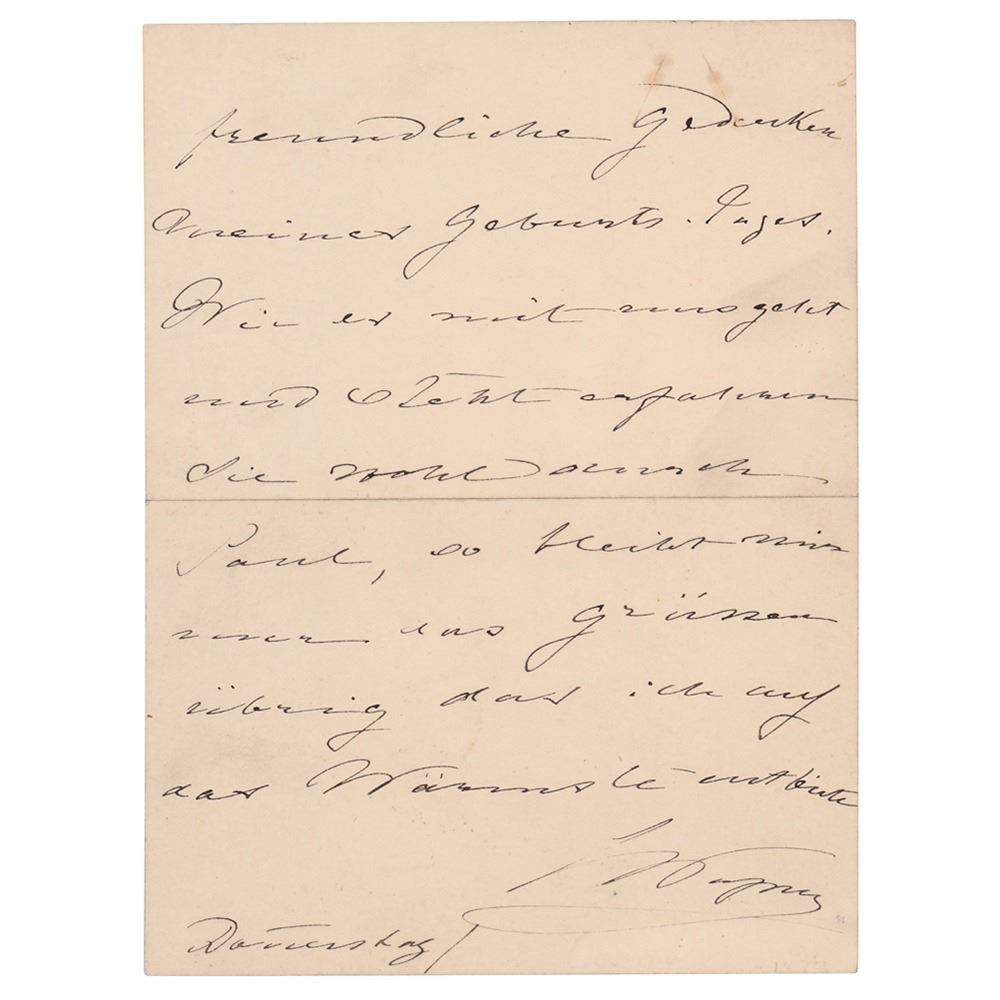 freundliche Gedenken
meines Geburts-Tages.
Wie es mit uns geht
und steht erfahren
Sie wohl durch
Paul, so bleibt mir
nur das Grüssen
übrig das ich auf
das Wärmste entbiete
CWagner
Donnerstag